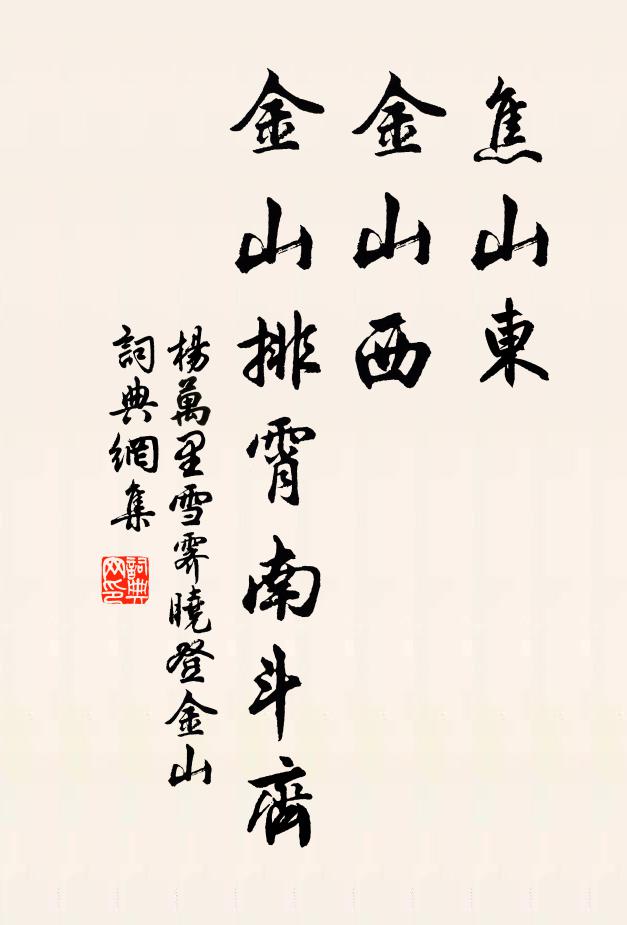 焦山東
金山西
金山排霄南斗齊
楊萬里雪霽曉登金山
詞典網集
詞典
网印